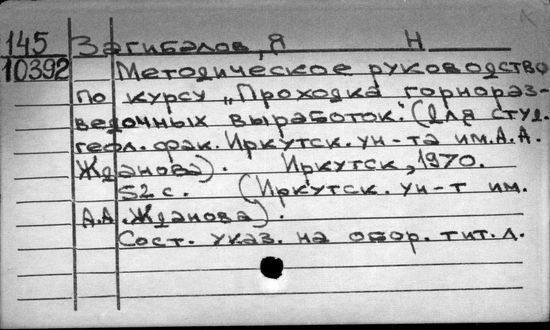 145 Загибалов, Я Н
10392 Методическое руководство
по курсу „Проходка горнораз-
ведочных выработок". (Для студ.
геол. фак. Иркутск. ун-та им. А.А.
Жданова). Иркутск, 1970.
52 с. (Иркутск. ун-т им.
А.А. Жданова).
Сост. указ. на обор. тит. л.